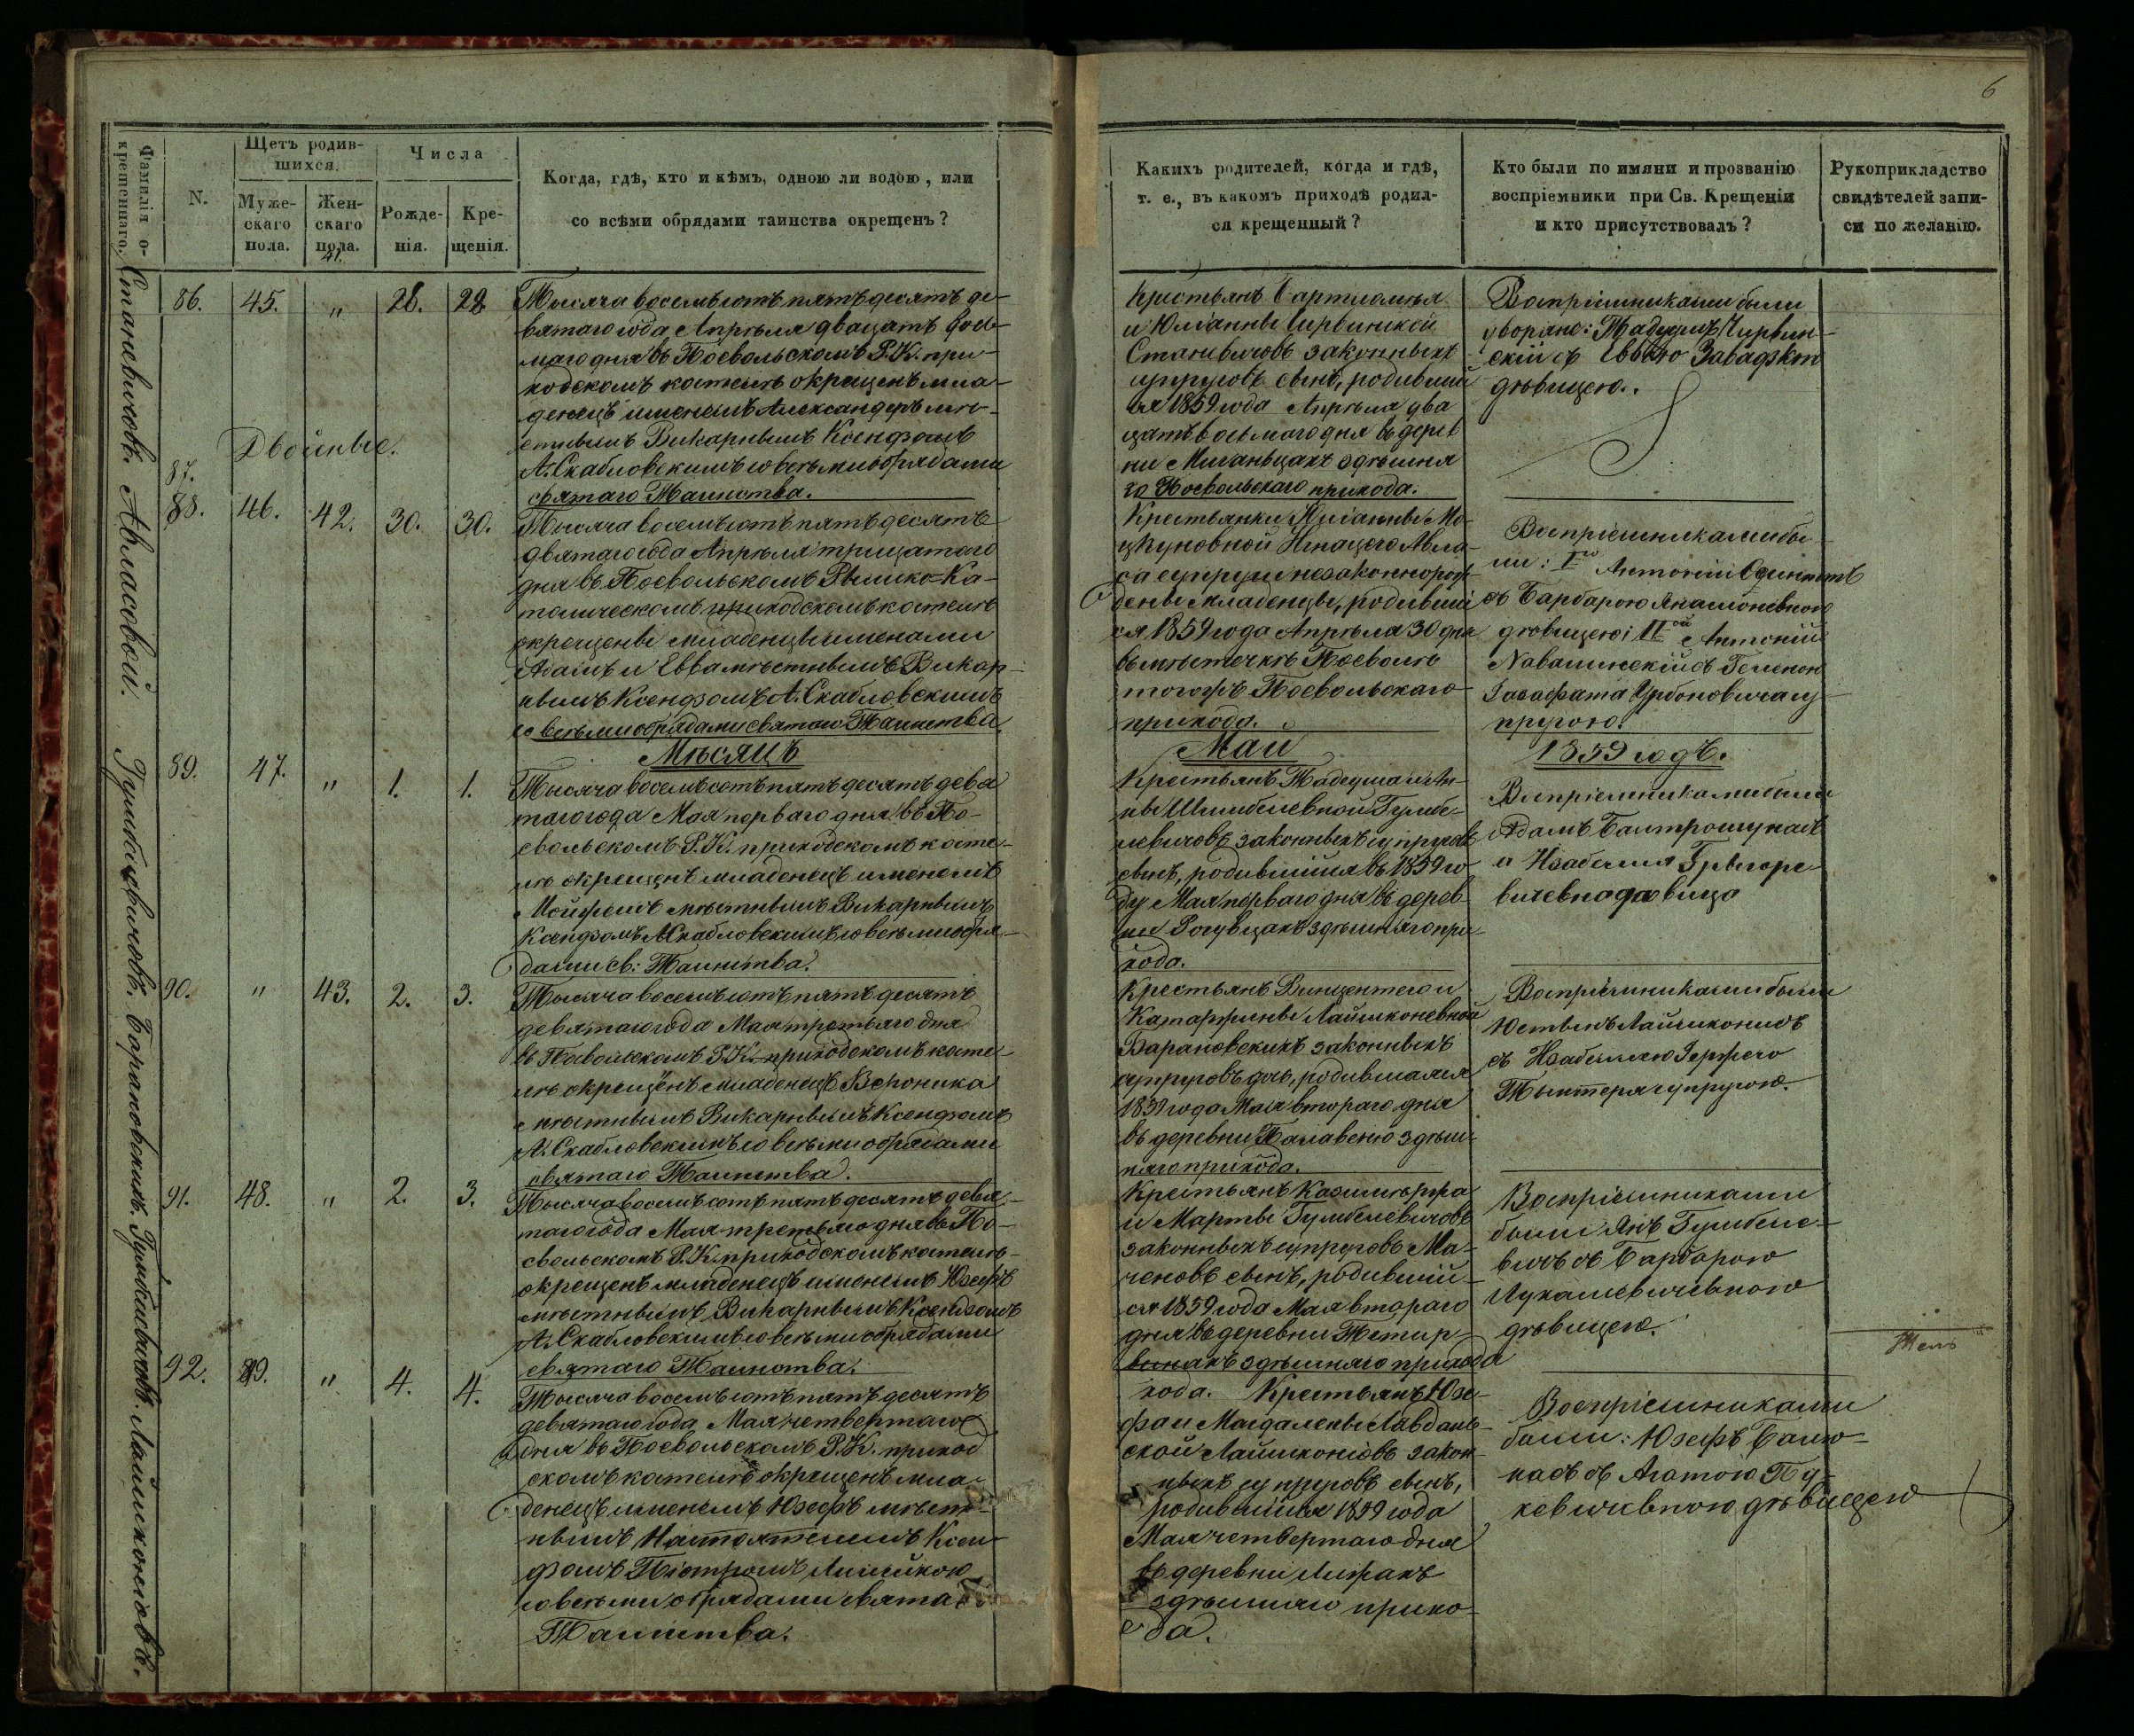 6
Фамилія о-
крещеннаго.
N.
Щетъ родив-
шихся.
Муже-
скаго
пола.
Жен-
скаго
пола.
41.
Числа
Рожде-
нія.
Кре-
щенія.
Когда, гдѣ, кто и кѣмъ, одною ли водою, или
со всѣми обрядами таинства окрещенъ?
Каких родителей, когда и гдѣ,
т. е., въ какомъ приходѣ родил-
ся крещенный?
Кто были по имяни и прозванію
воспріемники при Св. Крещеніи
и кто присутствовалъ?
Рукоприкладство
свидѣтелей запи-
си по желанію.
Станевичовъ.
86. 45. " 28. 28
Тысяча восемьсотъ пятьдесятъ де-
вятаго года Апрѣля двацать вось-
маго дня въ Посвольскомъ Р. К. при-
ходскомъ костелѣ окрещенъ мла-
денецъ именемъ Александеръ мѣ-
стнымъ Викарнымъ Ксендзомъ
А. Скабловскимъ со всѣми обрядами
святаго Таинства.
Крестьянъ Бартломѣя
и Юліанны Чирвинской
Станевичовъ законныхъ
супруговъ сынъ, родивший
ся 1859 года Апрѣля два
цать восьмаго дня въ дерев
ни здѣшня
го Посвольскаго прихода.
Воспріемниками были
дворяне: Тадеушъ Чирвин-
скій съ Еввою Завадзкою
дѣвицею.
Двойные.
Авласовой.
87.
88. 46. 42. 30. 30.
Тысяча восемьсотъ пятьдесятъ
двятаго года Апрѣля трицатаго
дня въ Посвольскомъ Римско-Ка-
толическомъ приходскомъ костелѣ
окрещены младенцы именами
Адамъ и Евва мѣстнымъ Викар-
нымъ Ксендзомъ А. Скабловскимъ
со всѣми обрядами святаго Таинства.
Крестьянки Юліанны Мо-
цкуновной Игнацего Авла-
са супруги незаконнорож-
дены младенцы, родивши
ся 1859 года Апрѣля 30 дня
въ мѣстечкѣ Посволѣ
тогожъ Посвольскаго
прихода.
Воспріемниками бы
ли: I го Антоній
съ Барбарою
дѣвицею; II ой Антоній
съ Геленою
пругою.
Мѣсяцъ
Май
1859 годъ.
Гумбелевичовъ.
89. 47. " 1. 1.
Тысяча восемьсотъ пятьдесятъ девя
таго года Мая перваго дня въ По-
свольскомъ Р. К. приходскомъ косте-
лѣ окрещенъ младенецъ именемъ
мѣстнымъ Викарнымъ
Ксендзомъ А. Скабловскимъ со всѣми обря-
дами св: Таинства.
Крестьянъ Тадеуша и Ан-
ны Гумбе-
левичовъ законныхъ супруговъ
сынъ, родившійся въ 1859 го
ду Мая перваго дня въ дерев
ни здѣшняго при-
хода.
Воспріемниками были
Адамъ
и Изабелля
дѣвица
Барановскихъ.
90. " 43. 2. 3.
Тысяча восемьсотъ пятьдесятъ
девятаго года Мая третьяго дня
въ Посвольскомъ Р. К. приходскомъ косте-
лѣ окрещенъ младенецъ Вероника
мѣстнымъ Викарнымъ Ксендзомъ
А. Скабловскимъ со всѣми обрядами
святаго Таинства.
Крестьянъ Винцентего и
Катаржины Лайшконевной
Барановскихъ законныхъ
супруговъ дочь, родившаяся
1859 года Мая втораго дня
въ деревни здѣш-
няго прихода.
Воспріемниками были
Юстынъ Лайшконисъ
съ Изабеллею
супругою.
Гумбелевичовъ.
91. 48. " 2. 3.
Тысяча восемьсотъ пятьдесятъ девя-
таго года Мая третьяго дня въ По-
свольскомъ Р. К. приходскомъ костелѣ
окрещенъ младенецъ именемъ Юзефъ
мѣстнымъ Викарнымъ Ксендзомъ
А. Скабловскимъ со всѣми обрядами
святаго Таинства.
Крестьянъ Казимѣржа
и Марты Гумбелевичовъ
законныхъ супруговъ
сынъ, родивший-
ся 1859 года Мая втораго
дня въ деревни Тетир-
винахъ здѣшняго прихода
Воспріемниками
были Янъ Гумбеле-
вичъ съ Барбарою
Лукашевичевною
дѣвицею.
Лайшконіовъ.
92. 49. " 4. 4.
Тысяча восемьсотъ пятьдесятъ
девятаго года Мая четвертаго
дня въ Посвольскомъ Р. К. приход
скомъ костелѣ окрещенъ мла-
денецъ именемъ Юзефъ мѣст-
нымъ Настоятелемъ Ксен-
дзомъ
со всѣми обрядами свята
Таинства.
хода. Крестьянъ Юзе-
фа и Магдалены Лавдан-
ской Лайшконіовъ закон-
ныхъ супруговъ сынъ,
родившійся 1859 года
Мая четвертаго дня
въ деревни
здѣшняго прихо-
да.
Воспріемниками
были: Юзефъ
съ Агатою
дѣвицею